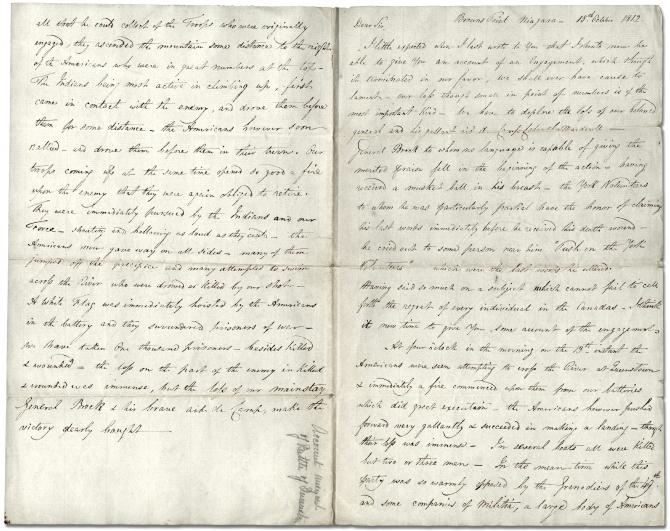 Browns Point Niagara - 15th October 1812
Dear Sir,
I little expected when I last wrote to You that I should now be
able to give You an account of an Engagement, which though
it terminated in our favor, we shall ever have cause to
lament - our loss though small in point of numbers is of the
most important kind - We have to deplore the loss of our beloved
general and his gallant aid de Camp
General Brock to whom no language is capable of giving the
merited praise fell in the beginning of the action - having
received a musket ball in his breast - the York Volunteers
to whom he was particularly partial have the honor of claiming
his last words immediately before he received his death wound -
he cried out to some person near him "Push on the York
Volunteers" which were the last words he uttered.
Having said so much on a subject which cannot fail to call
forth the regret of every individual in the Canadas - I
it now time to give You some account of the engagement -
At four o'clock in the morning on the 13th instant the
Americans were seen attempting to cross the River at Queenstown
& immediately a fire commenced upon them from our batteries
which did great execution - the Americans however pushed
forward very gallantly & succeeded in making a landing - though
their loss was immense - In several boats all were killed
but two or three men - In the mean time while this
party was so warmly opposed by the Grenadiers of the 49th
and some companies of Militia, a large body of Americans
all that he could collect of the Troops who were originally
engaged, they ascended the mountain some distance to the right
of the Americans who were in great numbers at the top -
The Indians being most active in climbing up, first
came in contact with the enemy, and drove them before
them for some distance - the Americans however soon
rallied - and drove them before them in their turn. Our
troops coming up at the same time opened so good a fire
upon the enemy that they were again obliged to retire.
They were immediately pursued by the Indians and our
Force - shouting and hallooing as loud as they could - the
Americans now gave way on all sides - many of them
jumped off the precipice and many attempted to swim
across the River who were drowned or killed by our shot -
A White Flag was immediately hoisted by the Americans
in the battery and they surrendered prisoners of war -
We have taken One thousand prisoners - besides killed
& wounded - the loss on the part of the enemy in killed
& wounded was immense, but the loss of our mainstay
General Brock & his brave aid de Camp, made the
victory dearly bought
Account
of Battle of Queenston